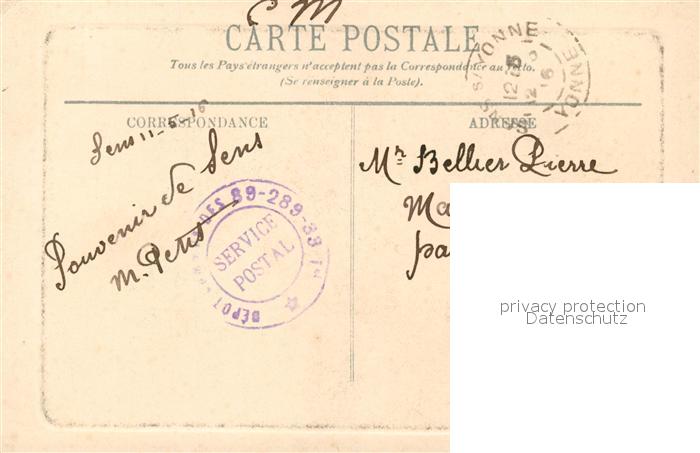 C M
CARTE POSTALE
Tous les Pays étrangers n'acceptent pas la Correspondance au recto.
(Se renseigner à la Poste).
CORRESPONDANCE
ADRESSE
S/YONNE
12
YONNE
Sens 11-5-16
Souvenir de Sens
M. Petit
DÉPOT DES 89-289-33 Tal
SERVICE
POSTAL
Mr Bellier Pierre
Ma
pa
privacy protection
Datenschutz